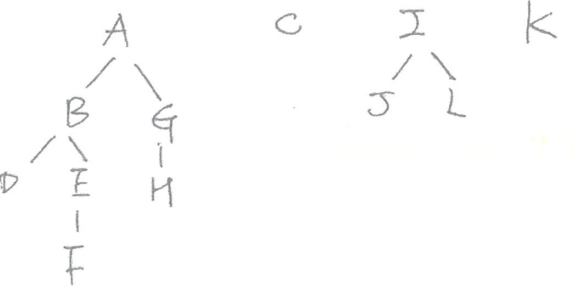 A C I K
B G J L
D E H
F